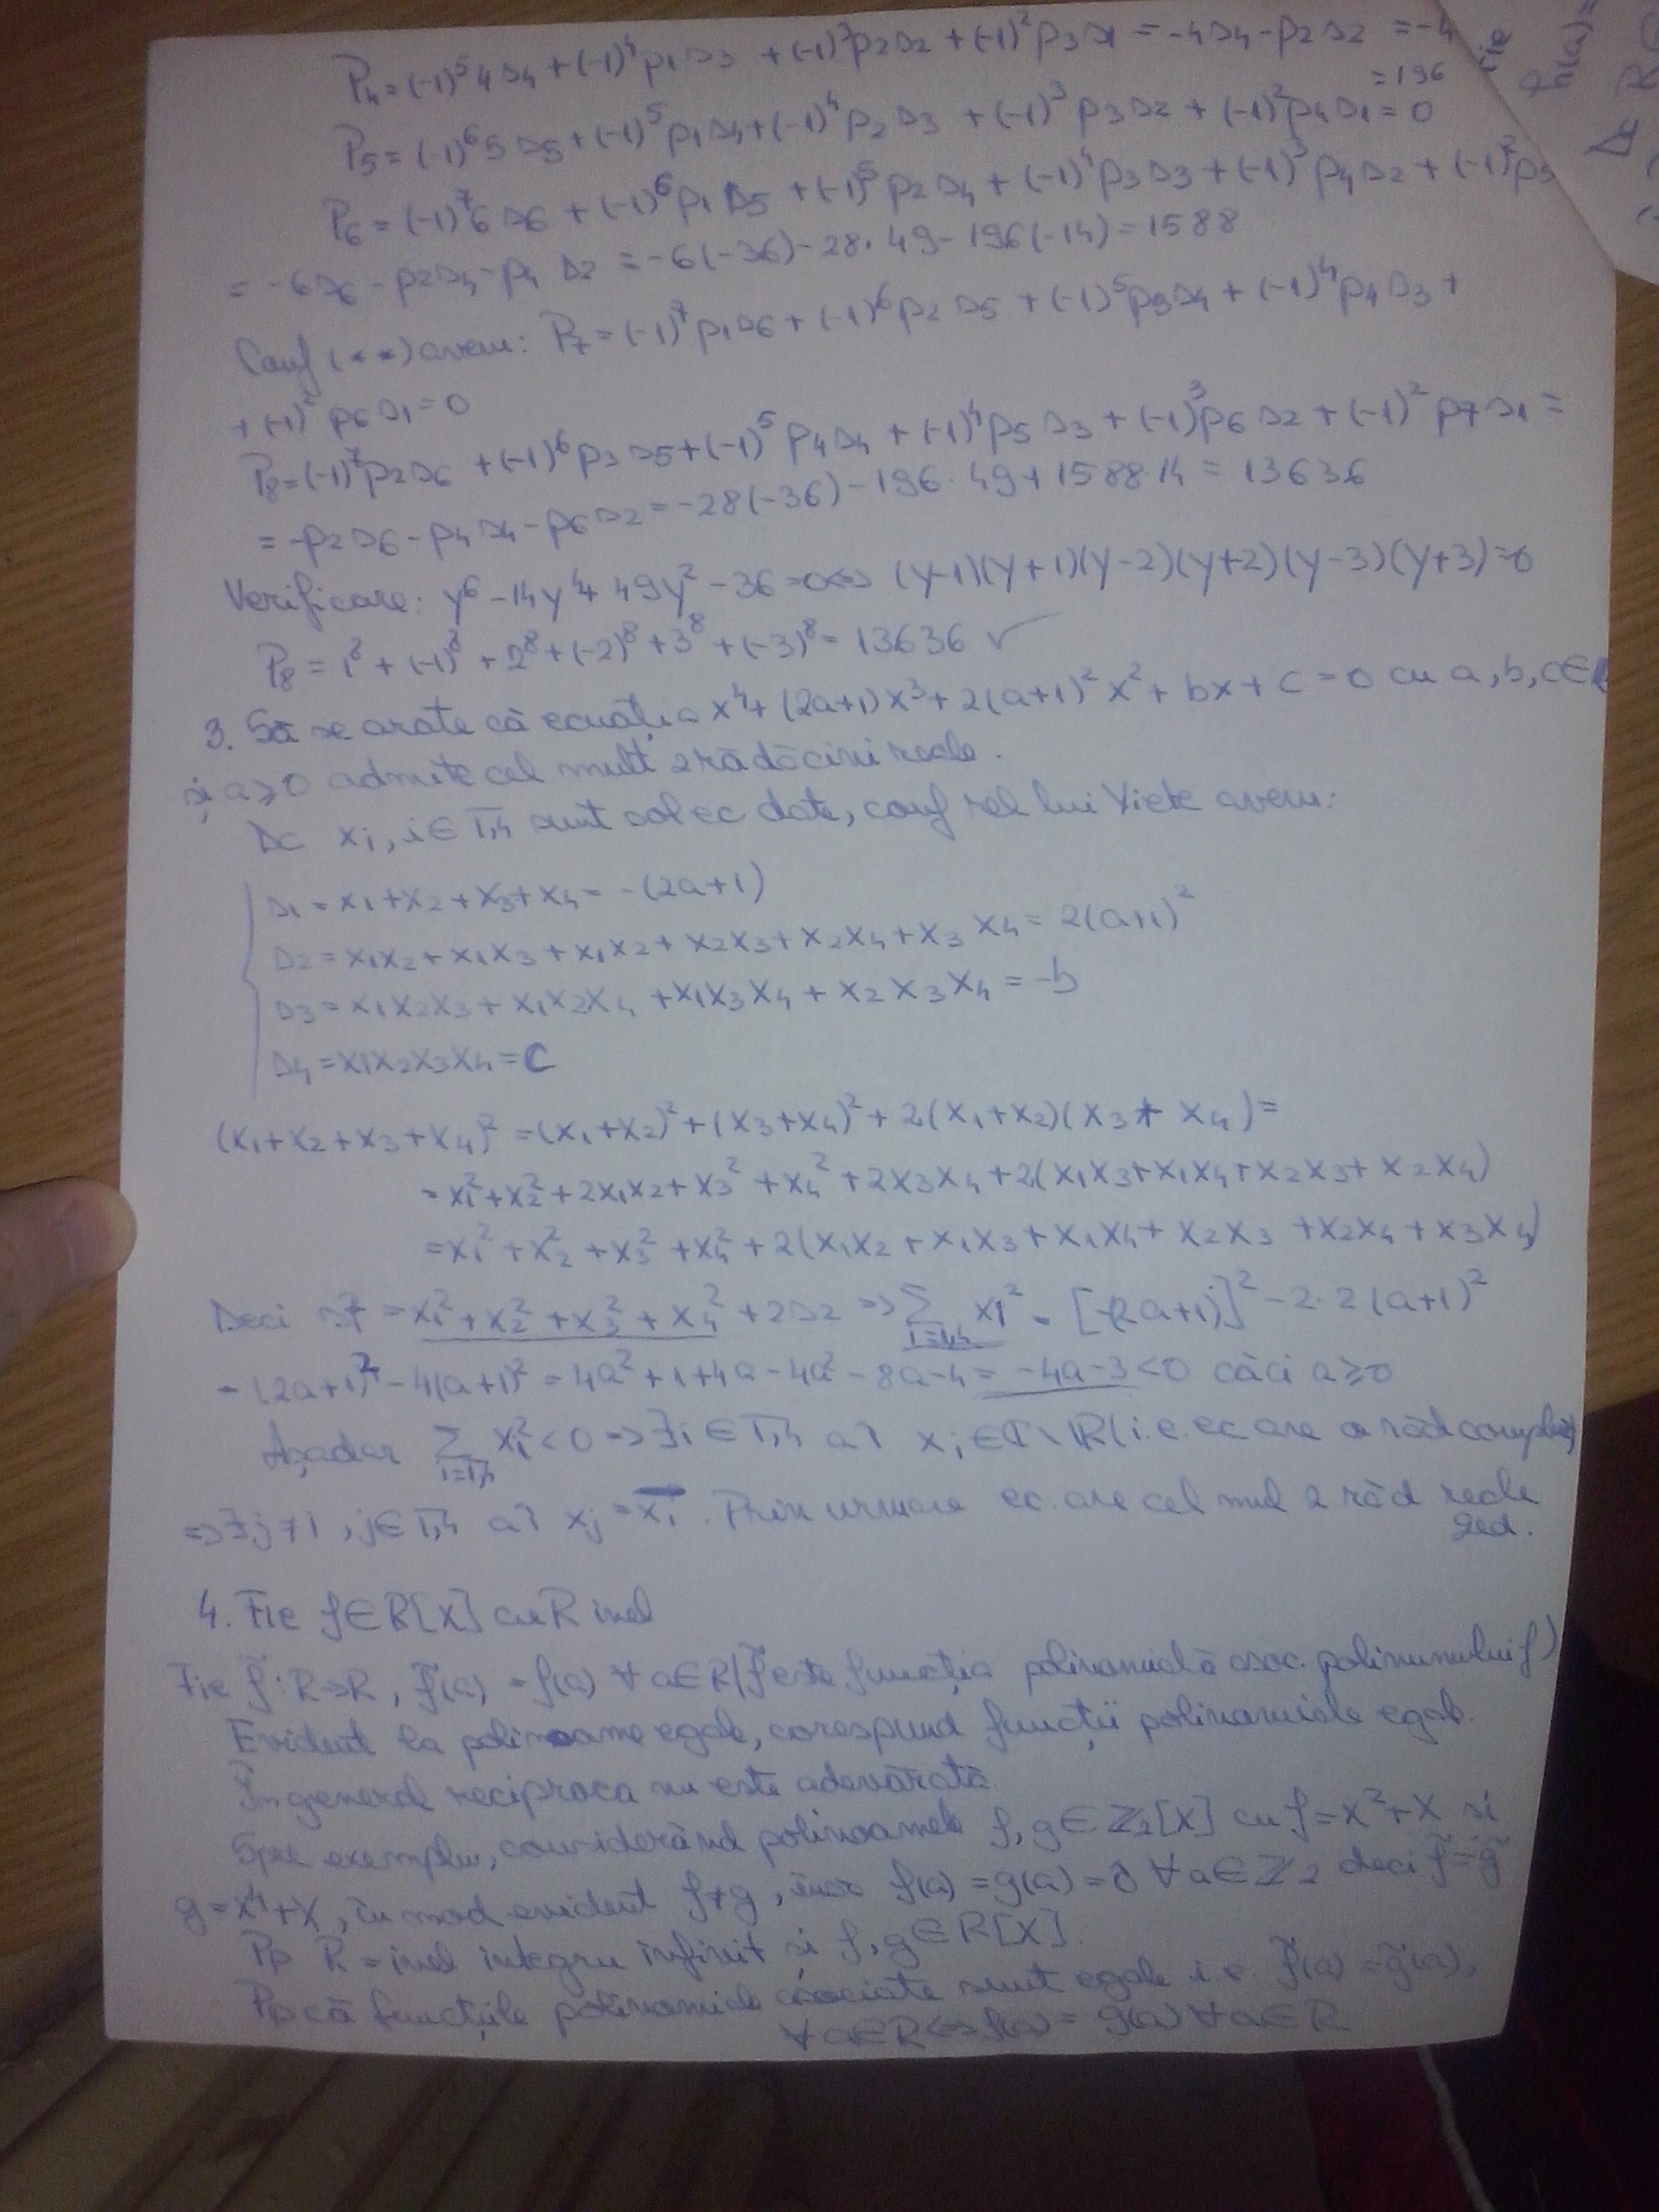 P₄=(-1)⁵4s₄+(-1)⁴p₁s₃+(-1)³p₂s₂+(-1)²p₃s₁=-4s₄-p₂s₂=-4
=196
P₅=(-1)⁶5s₅+(-1)⁵p₁s₄+(-1)⁴p₂s₃+(-1)³p₃s₂+(-1)²p₄s₁=0
P₆=(-1)⁷6s₆+(-1)⁶p₁s₅+(-1)⁵p₂s₄+(-1)⁴p₃s₃+(-1)³p₄s₂+(-1)²p₅
=-6s₆-p₂s₄-p₄s₂=-6(-36)-28·49-196(-14)=1588
Conf (**) avem: P₇=(-1)⁷p₁s₆+(-1)⁶p₂s₅+(-1)⁵p₃s₄+(-1)⁴p₄s₃+
+(-1)²p₆s₁=0
P₈=(-1)⁷p₂s₆+(-1)⁶p₃s₅+(-1)⁵p₄s₄+(-1)⁴p₅s₃+(-1)³p₆s₂+(-1)²p₇s₁=
=-p₂s₆-p₄s₄-p₆s₂=-28(-36)-196·49+1588·14=13636
Verificare: y⁶-14y⁴+49y²-36=0⇔(y-1)(y+1)(y-2)(y+2)(y-3)(y+3)=0
P₈=1⁸+(-1)⁸+2⁸+(-2)⁸+3⁸+(-3)⁸=13636 ✓
3. Să se arate că ecuația x⁴+(2a+1)x³+2(a+1)²x²+bx+c=0 cu a,b,c∈R
și a≥0 admite cel mult 2 rădăcini reale.
Dc xᵢ, i∈1,4 sunt sol ec date, conf rel lui Viete avem:
s₁=x₁+x₂+x₃+x₄=-(2a+1)
s₂=x₁x₂+x₁x₃+x₁x₂+x₂x₃+x₂x₄+x₃x₄=2(a+1)²
s₃=x₁x₂x₃+x₁x₂x₄+x₁x₃x₄+x₂x₃x₄=-b
s₄=x₁x₂x₃x₄=c
(x₁+x₂+x₃+x₄)²=(x₁+x₂)²+(x₃+x₄)²+2(x₁+x₂)(x₃+x₄)=
=x₁²+x₂²+2x₁x₂+x₃²+x₄²+2x₃x₄+2(x₁x₃+x₁x₄+x₂x₃+x₂x₄)
=x₁²+x₂²+x₃²+x₄²+2(x₁x₂+x₁x₃+x₁x₄+x₂x₃+x₂x₄+x₃x₄)
Deci s₁²=x₁²+x₂²+x₃²+x₄²+2s₂⇒∑ᵢ₌₁,₄ xᵢ²=[-(2a+1)]²-2·2(a+1)²
=(2a+1)²-4(a+1)²=4a²+1+4a-4a²-8a-4=-4a-3<0 căci a≥0
Așadar ∑ᵢ₌₁,₄ xᵢ²<0⇒∃i∈1,4 aî xᵢ∈C\R(i.e. ec are o răd complexă)
⇒∃j≠i, j∈1,4 aî xⱼ=x̄ᵢ. Prin urmare ec. are cel mul 2 răd reale
qed.
4. Fie f∈R[X] cu R inel
Fie f̃:R→R, f̃(a)=f(a) ∀a∈R(f̃ este funcția polinomială asoc. polinomului f)
Evident la polinoame egale, corespund funcții polinomiale egale.
În general reciproca nu este adevărată.
Spre exemplu, considerând polinoamele f,g∈Z₂[X] cu f=X²+X și
g=X⁴+X, în mod evident f≠g, însă f(a)=g(a)=0̂ ∀a∈Z₂ deci f̃=g̃
Pp R=inel integru infinit și f,g∈R[X].
Pp că funcțiile polinomiale asociate sunt egale i.e. f̃(a)=g̃(a),
∀a∈R⇔f(a)=g(a) ∀a∈R